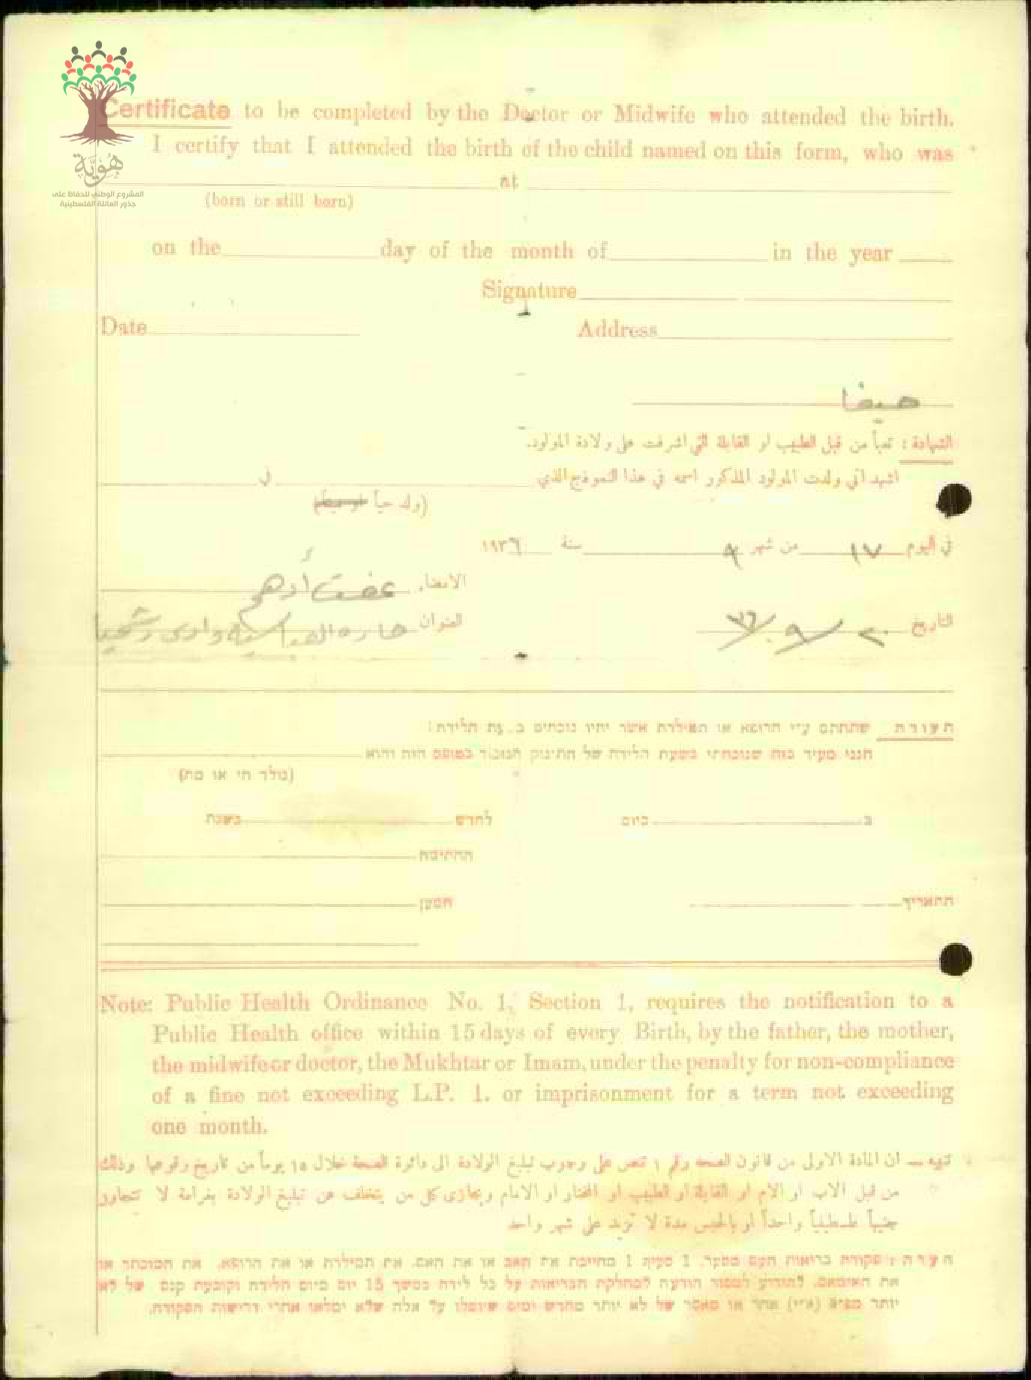 هُوِيَّة
المشروع الوطني للحفاظ على
جذور العائلة الفلسطينية
Certificate to be completed by the Doctor or Midwife who attended the birth.
I certify that I attended the birth of the child named on this form, who was
at
(born or still born)
on the day of the month of in the year
Signature
Date Address
حيفا
الشهادة : تعبأ من قبل الطبيب او القابلة التي اشرفت على ولادة المولود.
اشهد اني ولدت المولود المذكور اسمه في هذا النموذج الذي في
(ولد حياً او ميتاً)
في اليوم ١٧ من شهر ٩ سنة ١٩٣٦
الامضاء. عفت أدهم
التاريخ ٢٠/٩/٣٦ العنوان حارة وادى
תעודה שתחתם ע״י הרופא או המילדת אשר יהיו נוכחים ב. עת הלידה:
הנני מעיד בזה שנוכחתי בשעת הלידה של התינוק הנזכר בטופס הזה והוא
(נולד חי או מת)
ב ביום לחדש בשנת
החתימה
התאריך המען
Note: Public Health Ordinance No. 1, Section 1, requires the notification to a
Public Health office within 15 days of every Birth, by the father, the mother,
the midwife or doctor, the Mukhtar or Imam, under the penalty for non-compliance
of a fine not exceeding L.P. 1. or imprisonment for a term not exceeding
one month.
تنبيه — ان المادة الاولى من قانون الصحة رقم ١ تنص على وجوب تبليغ الولادة الى دائرة الصحة خلال ١٥ يوماً من تاريخ وقوعها وذلك
من قبل الاب او الام او القابلة او الطبيب او المختار او الامام ويجازى كل من يتخلف عن تبليغ الولادة بغرامة لا تتجاوز
جنيهاً فلسطينياً واحداً او بالحبس مدة لا تزيد على شهر واحد
הערה: פקודת בריאות העם מספר. 1 סעיף 1 מחייבת את האב או את האם, את המילדת או את הרופא, את המוכתר או
את האימאם, להודיע למחלקת הבריאות על כל לידה במשך 15 יום מיום הלידה וקובעת קנס של לא
יותר מפ״פ (א״י) אחד או מאסר של לא יותר מחדש ימים שיוטלו על אלה שלא ימלאו אחרי דרישות הפקודה.